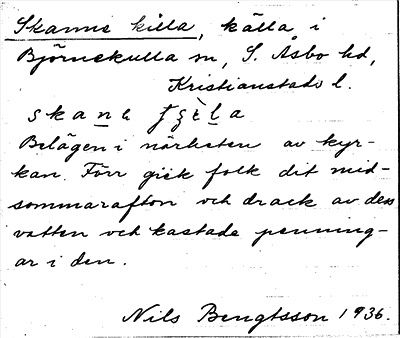 Skanns killa, källa i
Björnekulla sn, S. Åsbo hd,
Kristianstads l.
skan
Belägen i närheten av kyr-
kan. Förr gick folk dit mid-
sommarafton och drack av dess
vatten och kastade penning-
ar i den.
Nils Bengtsson 1936.